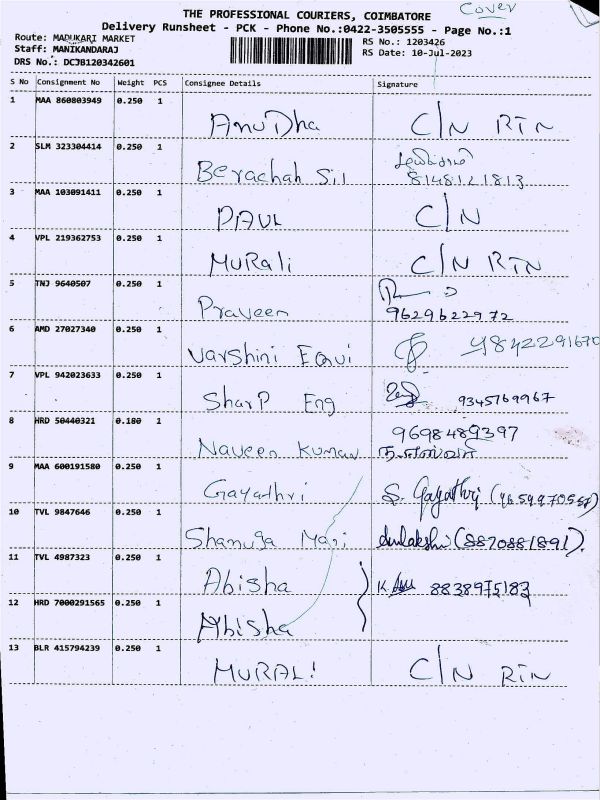 Cover
THE PROFESSIONAL COURIERS, COIMBATORE
Delivery Runsheet - PCK - Phone No.:0422-3505555 - Page No.:1
Route: MADUKARI MARKET
RS No.: 1203426
Staff: MANIKANDARAJ
RS Date: 10-Jul-2023
DRS No.: DCJB120342601
S No Consignment No Weight PCS Consignee Details Signature
1 MAA 860803949 0.250 1
AnuDha C/N RTN
2 SLM 323304414 0.250 1
Berachah Sil 8148121813
3 MAA 103091411 0.250 1
PAUL C/N
4 VPL 219362753 0.250 1
MuRali C/N RTN
5 TNJ 9640507 0.250 1
Praveen 9629622972
6 AMD 27027340 0.250 1
Varshini Equi 9842291670
7 VPL 942023633 0.250 1
SharP Eng 9345769967
8 HRD 50440321 0.180 1
9698489397
Naveen Kumar
9 MAA 600191580 0.250 1
Gayathri S. Gayathri
10 TVL 9847646 0.250 1
Shanuga Mari (8870881891).
11 TVL 4987323 0.250 1
Abisha 8838975183
12 HRD 7000291565 0.250 1
Abisha
13 BLR 415794239 0.250 1
MURALI C/N RTN